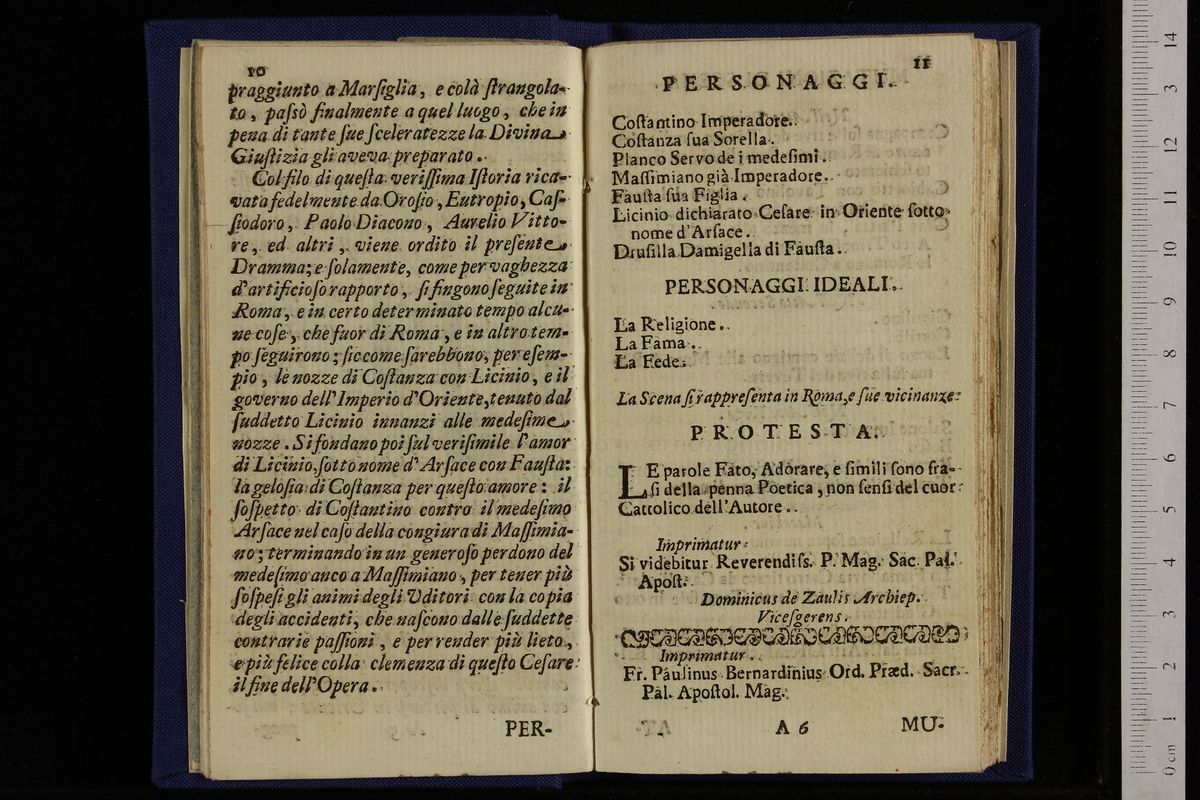 10
praggiunto a Marſiglia, e colà ſtrangola-
to, paſsò finalmente a quel luogo, che in
pena di tante ſue ſceleratezze la Divina
Giuſtizia gli aveva preparato.
Col filo di queſta veriſſima Iſtoria rica-
vata fedelmente da Oroſio, Eutropio, Caſ-
ſiodoro, Paolo Diacono, Aurelio Vitto-
re, ed altri, viene ordito il preſente
Dramma; e ſolamente, come per vaghezza
d'artificioſo rapporto, ſi fingono ſeguite in
Roma, e in certo determinato tempo alcu-
ne coſe, che fuor di Roma, e in altro tem-
po ſeguirono; ſiccome ſarebbono, per eſem-
pio, le nozze di Coſtanza con Licinio, e il
governo dell'Imperio d'Oriente, tenuto dal
ſuddetto Licinio innanzi alle medeſime
nozze. Si fondano poi ſul veriſimile l'amor
di Licinio, ſotto nome d'Arſace con Fauſta:
la geloſia di Coſtanza per queſto amore: il
ſoſpetto di Coſtantino contro il medeſimo
Arſace nel caſo della congiura di Maſſimia-
no; terminando in un generoſo perdono del
medeſimo anco a Maſſimiano, per tener più
ſoſpeſi gli animi degli Uditori con la copia
degli accidenti, che naſcono dalle ſuddette
contrarie paſſioni, e per render più lieto,
e più felice colla clemenza di queſto Ceſare
il fine dell'Opera.
PER-
11
PERSONAGGI.
Coſtantino Imperadore.
Coſtanza ſua Sorella.
Planco Servo de i medeſimi.
Maſſimiano già Imperadore.
Fauſta ſua Figlia.
Licinio dichiarato Ceſare in Oriente ſotto
nome d'Arſace.
Druſilla Damigella di Fauſta.
PERSONAGGI IDEALI.
La Religione.
La Fama.
La Fede.
La Scena ſi rappreſenta in Roma, e ſue vicinanze.
PROTESTA.
LE parole Fato, Adorare, e ſimili ſono fra-
ſi della penna Poetica, non ſenſi del cuor
Cattolico dell'Autore.
Imprimatur:
Si videbitur Reverendiſs. P. Mag. Sac. Pal.
Apoſt.
Dominicus de Zaulis Archiep.
Viceſgerens.
Imprimatur.
Fr. Paulinus Bernardinius Ord. Præd. Sacr.
Pal. Apoſtol. Mag.
A 6
MU-
0 cm 1 2 3 4 5 6 7 8 9 10 11 12 3 14